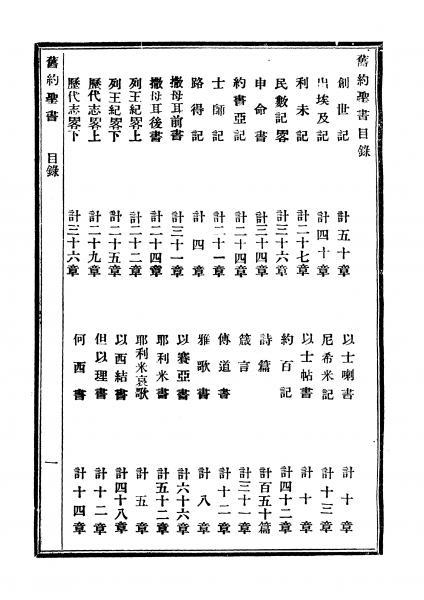 舊約聖書目錄
創世記 計五十章
出埃及記 計四十章
利未記 計二十七章
民數記畧 計三十六章
申命書 計三十四章
約書亞記 計二十四章
士師記 計二十一章
路得記 計四章
撒母耳前書 計三十一章
撒母耳後書 計二十四章
列王紀畧上 計二十二章
列王紀畧下 計二十五章
歷代志畧上 計二十九章
歷代志畧下 計三十六章
以士喇書 計十章
尼希米記 計十三章
以士帖書 計十章
約百記 計四十二章
詩篇 計百五十篇
箴言 計三十一章
傳道書 計十二章
雅歌書 計八章
以賽亞書 計六十六章
耶利米書 計五十二章
耶利米哀歌 計五章
以西結書 計四十八章
但以理書 計十二章
何西書 計十四章
舊約聖書 目錄 一